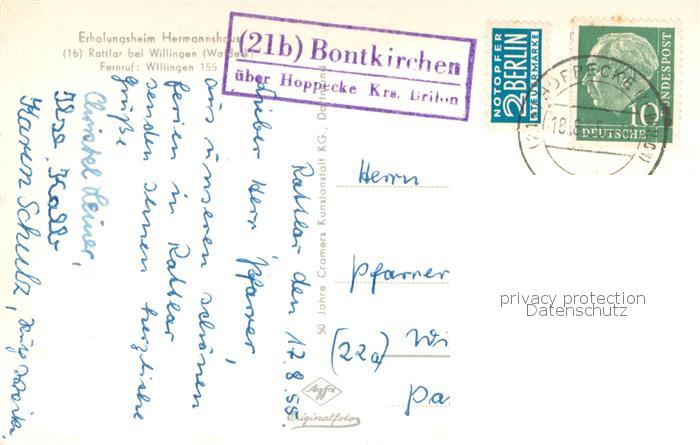 Erholungsheim Hermannshaus
(16) Rattlar bei Willingen (Waldeck)
Fernruf: Willingen 155
(21b) Bontkirchen
über Hoppecke Krs. Brilon
NOTOPFER
2 BERLIN
STEUERMARKE
DEUTSCHE
BUNDESPOST
10
HOPPECKE
18.8
50 Jahre Cramers Kunstanstalt KG., Dortmund
Agfa
Originalfoto
Rattlar den 17.8.55.
Lieber Herr Pfarrer,
aus unseren schönen
Ferien in Rattlar
senden Ihnen herzliche
Grüße
Christel Leiner,
Ilse
Karen Schulz,
Herrn
Pfarrer
(22a) Wi
Pa
privacy protection
Datenschutz